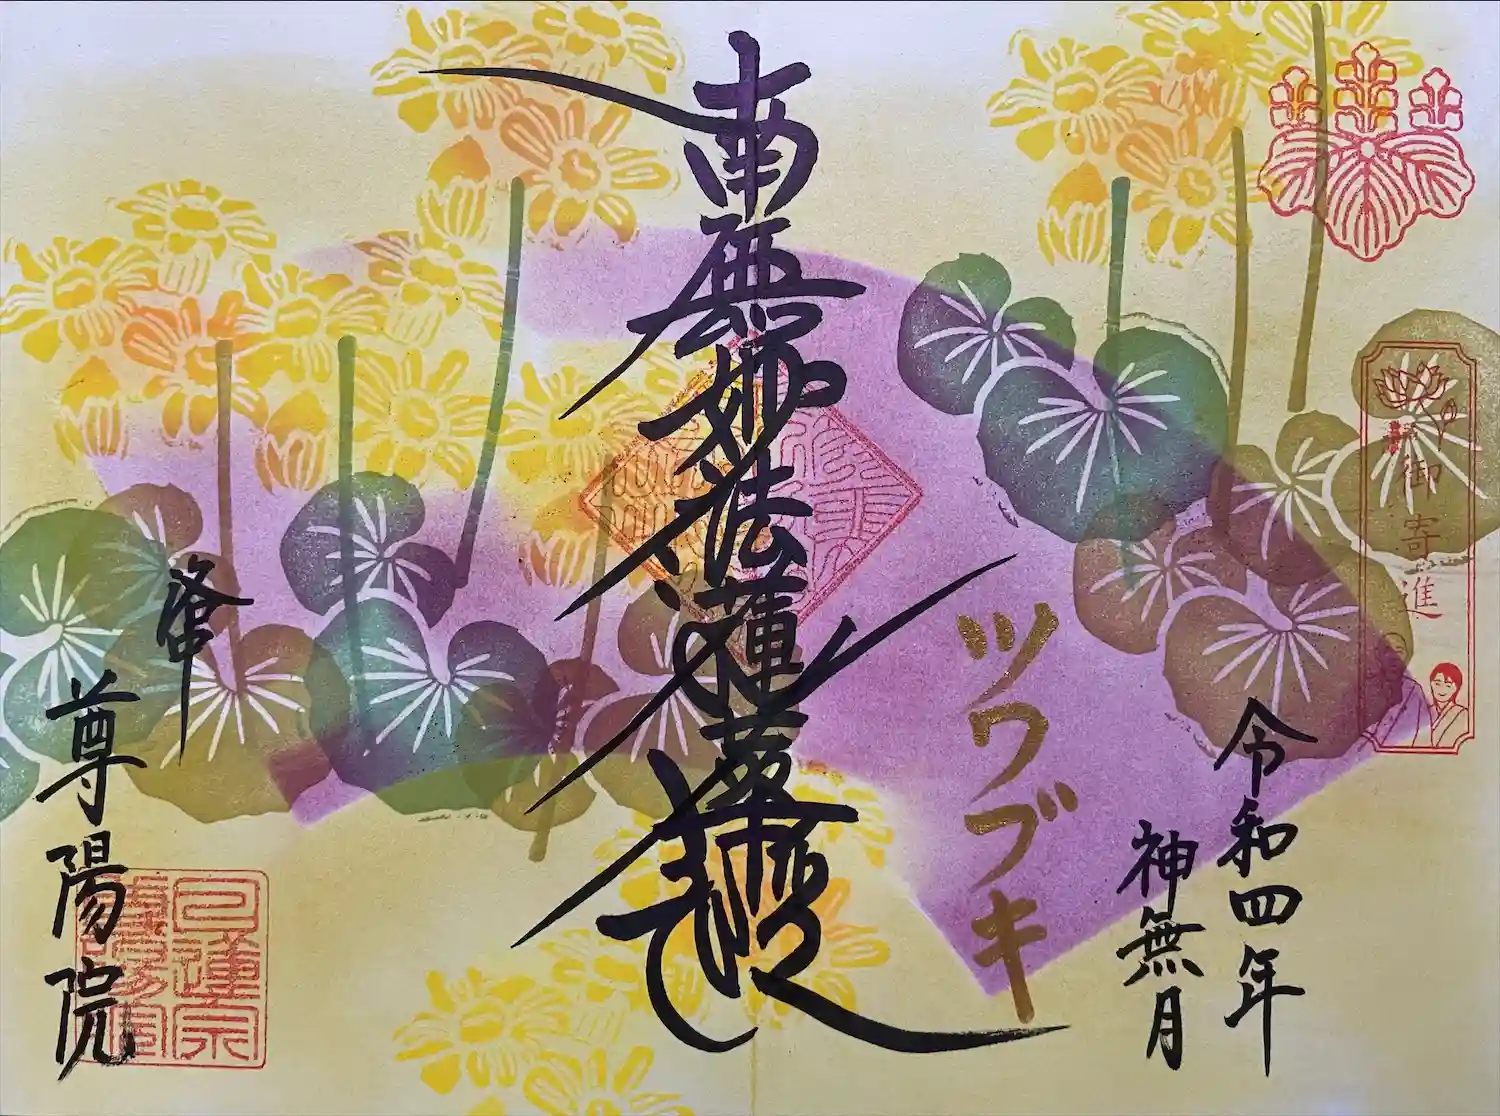 御寄進
令和四年
神無月
ツワブキ
南無妙法蓮華経
尊陽院
日蓮宗
尊陽院